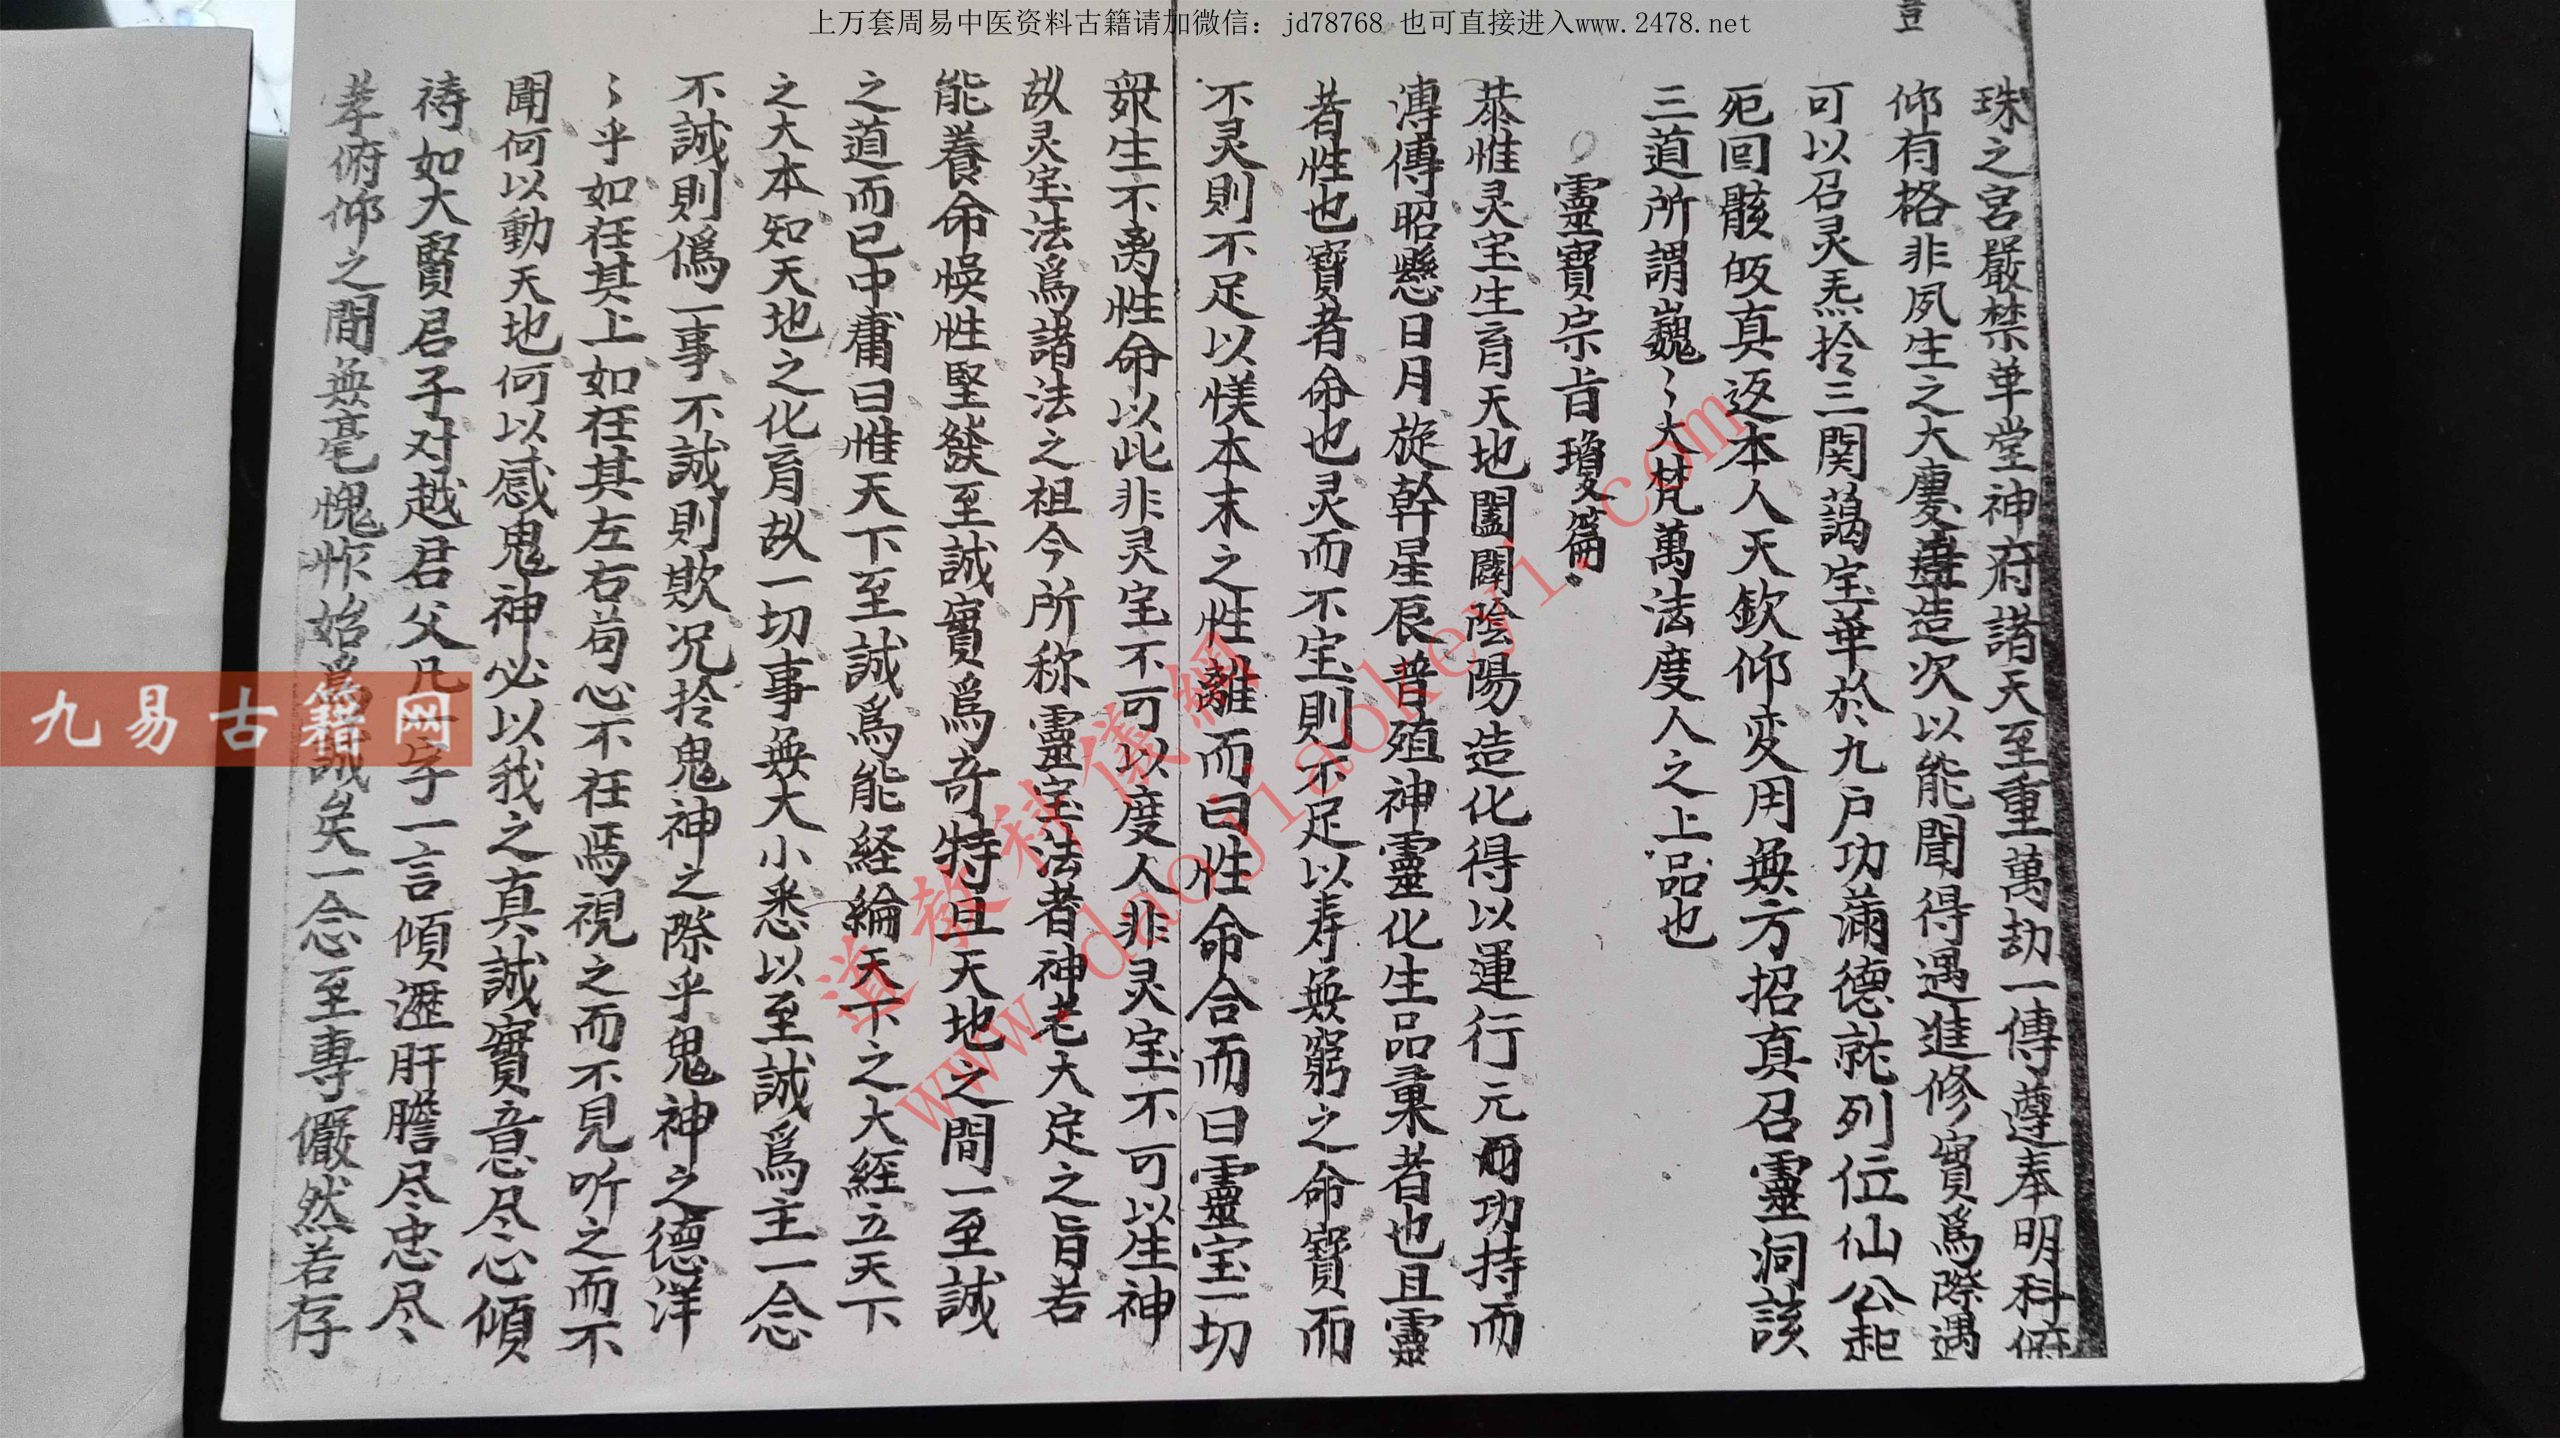 上万套周易中医资料古籍请加微信：jd78768 也可直接进入www.2478.net
珠之宮嚴禁單堂神府諸天至重萬劫一傳遵奉明科俯
仰有格非夙生之大慶造次以能聞得遇進修實爲際遇
可以召灵炁扵三関藹宝華於九户功滿德就列位仙公起
死回骸皈真返本人天欽仰变用無方招真召靈洞該
三道所謂巍〻大梵萬法度人之上品也
靈寶宗旨瓊篇
恭惟灵宝生育天地闔闢陰陽造化得以運行元功持而
溥傳昭懸日月旋幹星辰普殖神靈化生品彙者也且靈
者性也寶者命也灵而不宝則不足以寿無窮之命寶而
不灵則不足以懞本末之性離而曰性命合而曰靈宝一切
衆生不离性命以此非灵宝不可以度人非灵宝不可以生神
故灵宝法爲諸法之祖今所称靈宝法者神老大定之旨若
能養命悮性堅發至誠實爲奇特且天地之間一至誠
之道而已中庸曰惟天下至誠爲能経綸天下之大經立天下
之大本知天地之化育故一切事無大小悉以至誠爲主一念
不誠則僞一事不誠則欺况扵鬼神之際乎鬼神之德洋
〻乎如在其上如在其左右苟心不在焉視之而不見听之而不
聞何以動天地何以感鬼神必以我之真誠實意尽心傾
祷如大賢君子对越君父凡一字一言傾瀝肝膽尽忠尽
孝俯仰之間無毫愧怍始爲誠矣一念至專儼然若存
九易古籍网
道教科儀網
www.daojiaokeyi.com